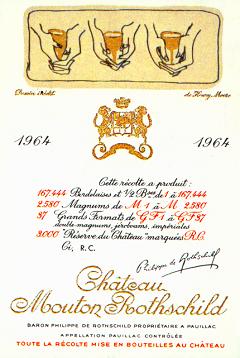 Dessin inédit de Henry Moore
1964 1964
Cette récolte a produit:
167.444 Bordelaises et 1/2 Bses de 1 à 167.444
2.580 Magnums de M 1 à M 2.580
87 Grands Formats de GF 1 à GF 87
double magnums, jéroboams, impériales
3.000 "Réserve du Château" marquées R.C.
Ci, R.C.
Philippe de Rothschild
Château
Mouton Rothschild
BARON PHILIPPE DE ROTHSCHILD PROPRIÉTAIRE A PAUILLAC
APPELLATION PAUILLAC CONTRÔLÉE
TOUTE LA RÉCOLTE MISE EN BOUTEILLES AU CHÂTEAU